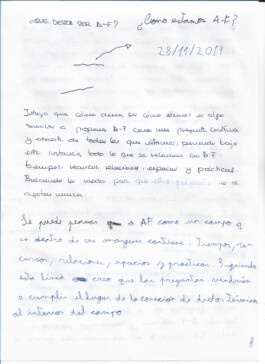 ¿QUE DESEA SER A-F? ¿Como estamos A-F?
28/11/2011
Intuyo que cómo desea ser cómo estamos es algo
similar a proponer A-F como una pregunta continua
y abierta de todos los que estamos, pensando bajo
esta instancia todo lo que se relaciona con A-F:
tiempos, recursos, relaciones, espacios y prácticas.
Buscando la modo para que esta pregunta no se
agoten nunca.
Se puede pensar a AF como un campo q
en dentro de sus margenes contiene: Tiempos, re-
cursos, relaciones, espacios y practicas. Siguiendo
esta linea creo que las preguntas vendrían
a cumplir el lugar de la conexion de
al interior del campo.